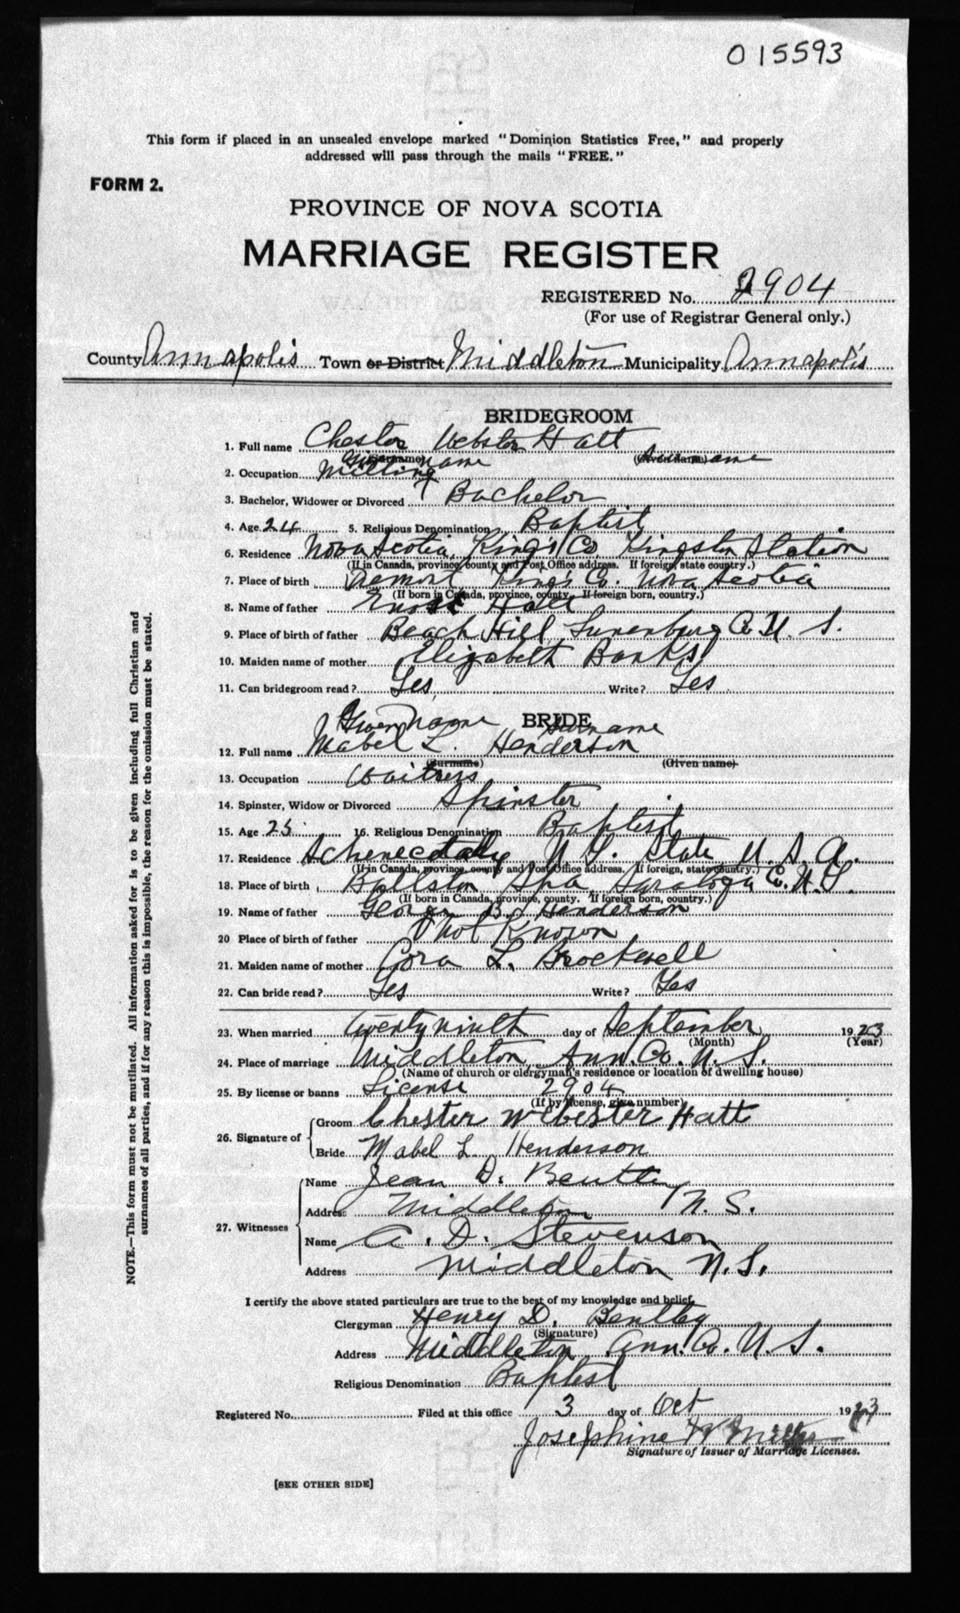 015593
This form if placed in an unsealed envelope marked "Dominion Statistics Free," and properly
addressed will pass through the mails "FREE."
FORM 2.
PROVINCE OF NOVA SCOTIA
MARRIAGE REGISTER
REGISTERED No. 2904
(For use of Registrar General only.)
County Annapolis Town or District Middleton Municipality Annapolis
BRIDEGROOM
1. Full name Chester Webster Hatt
(Surname) Given name (Given name) Surname
2. Occupation Milling
3. Bachelor, Widower or Divorced Bachelor
4. Age 24 5. Religious Denomination Baptist
6. Residence Nova Scotia, Kings Co Kingston Station
(If in Canada, province, county and Post Office address. If foreign, state country.)
7. Place of birth Tremont King's Co. Nova Scotia
(If born in Canada, province, county. If foreign born, country.)
8. Name of father Hatt
9. Place of birth of father Beach Hill, Lunenburg Co N. S.
10. Maiden name of mother Elizabeth Banks
11. Can bridegroom read? Yes Write? Yes
Given name BRIDE Surname
12. Full name Mabel L. Henderson
(Surname) (Given name)
13. Occupation Waitress
14. Spinster, Widow or Divorced Spinster
15. Age 25 16. Religious Denomination Baptist
17. Residence Schenectady N. Y. State U. S. A.
(If in Canada, province, county and Post Office address. If foreign, state country.)
18. Place of birth Ballston Spa, Saratoga Co. N. Y.
(If born in Canada, province, county. If foreign born, country.)
19. Name of father George B. Henderson
20 Place of birth of father Not Known
21. Maiden name of mother Cora L. Brockwell
22. Can bride read? Yes Write? Yes
23. When married Twenty ninth day of September 1923
(Month) (Year)
24. Place of marriage Middleton, Ann. Co. N. S.
(Name of church or clergyman's residence or location of dwelling house)
25. By license or banns License 2904
(If by license, give number)
26. Signature of Groom Chester Webster Hatt
Bride Mabel L. Henderson
27. Witnesses Name Jean D. Bentley
Address Middleton N. S.
Name A. D. Stevenson
Address Middleton N. S.
I certify the above stated particulars are true to the best of my knowledge and belief.
Clergyman Henry D. Bentley
(Signature)
Address Middleton, Ann. Co. N. S.
Religious Denomination Baptist
Registered No. Filed at this office 3 day of Oct 1923
Josephine W Miller
Signature of Issuer of Marriage Licenses.
[SEE OTHER SIDE]
NOTE.—This form must not be mutilated. All information asked for is to be given including full Christian and
surnames of all parties, and if for any reason this is impossible, the reason for the omission must be stated.